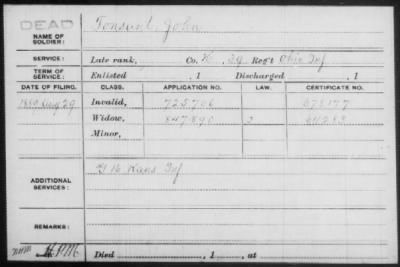 DEAD
NAME OF SOLDIER: Tonsant, John
SERVICE: Late rank, Co. K, 29 Reg't Ohio Inf
TERM OF SERVICE: Enlisted , 1 Discharged , 1
DATE OF FILING. CLASS. APPLICATION NO. LAW. CERTIFICATE NO.
1889 Aug 29 Invalid, 725706
Widow, 847890
Minor,
ADDITIONAL SERVICES: Kans Inf
REMARKS:
Died , 1 , at